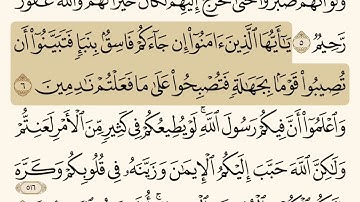 وَلَوْ أَنَّهُمْ صَبَرُوا۟ حَتَّىٰ تَخْرُجَ إِلَيْهِمْ لَكَانَ خَيْرًا لَّهُمْ وَٱللَّهُ غَفُورٌ
رَّحِيمٌ ٥ يَـٰٓأَيُّهَا ٱلَّذِينَ ءَامَنُوٓا۟ إِن جَآءَكُمْ فَاسِقٌۢ بِنَبَإٍ فَتَبَيَّنُوٓا۟ أَن
تُصِيبُوا۟ قَوْمًۢا بِجَهَـٰلَةٍ فَتُصْبِحُوا۟ عَلَىٰ مَا فَعَلْتُمْ نَـٰدِمِينَ ٦
وَٱعْلَمُوٓا۟ أَنَّ فِيكُمْ رَسُولَ ٱللَّهِ ۚ لَوْ يُطِيعُكُمْ فِى كَثِيرٍ مِّنَ ٱلْأَمْرِ لَعَنِتُّمْ
وَلَـٰكِنَّ ٱللَّهَ حَبَّبَ إِلَيْكُمُ ٱلْإِيمَـٰنَ وَزَيَّنَهُۥ فِى قُلُوبِكُمْ وَكَرَّهَ
٥١٦